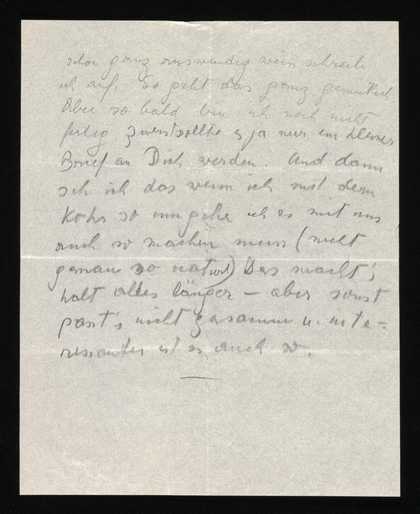 schon ganz auswendig weis schreib
ich auf. So geht das ganz gemütlich
Aber so bald bin ich noch nicht
fertig zuerst sollte es ja nur ein kleiner
Brief an Dich werden. Und dann
seh ich das wenn ich mit dem
so umgehe ich es mit uns
auch so machen muss (nicht
genau so nat.) Das macht's
halt alles länger – aber sonst
passt's nicht zusamm u. inte=
ressanter ist es auch so.